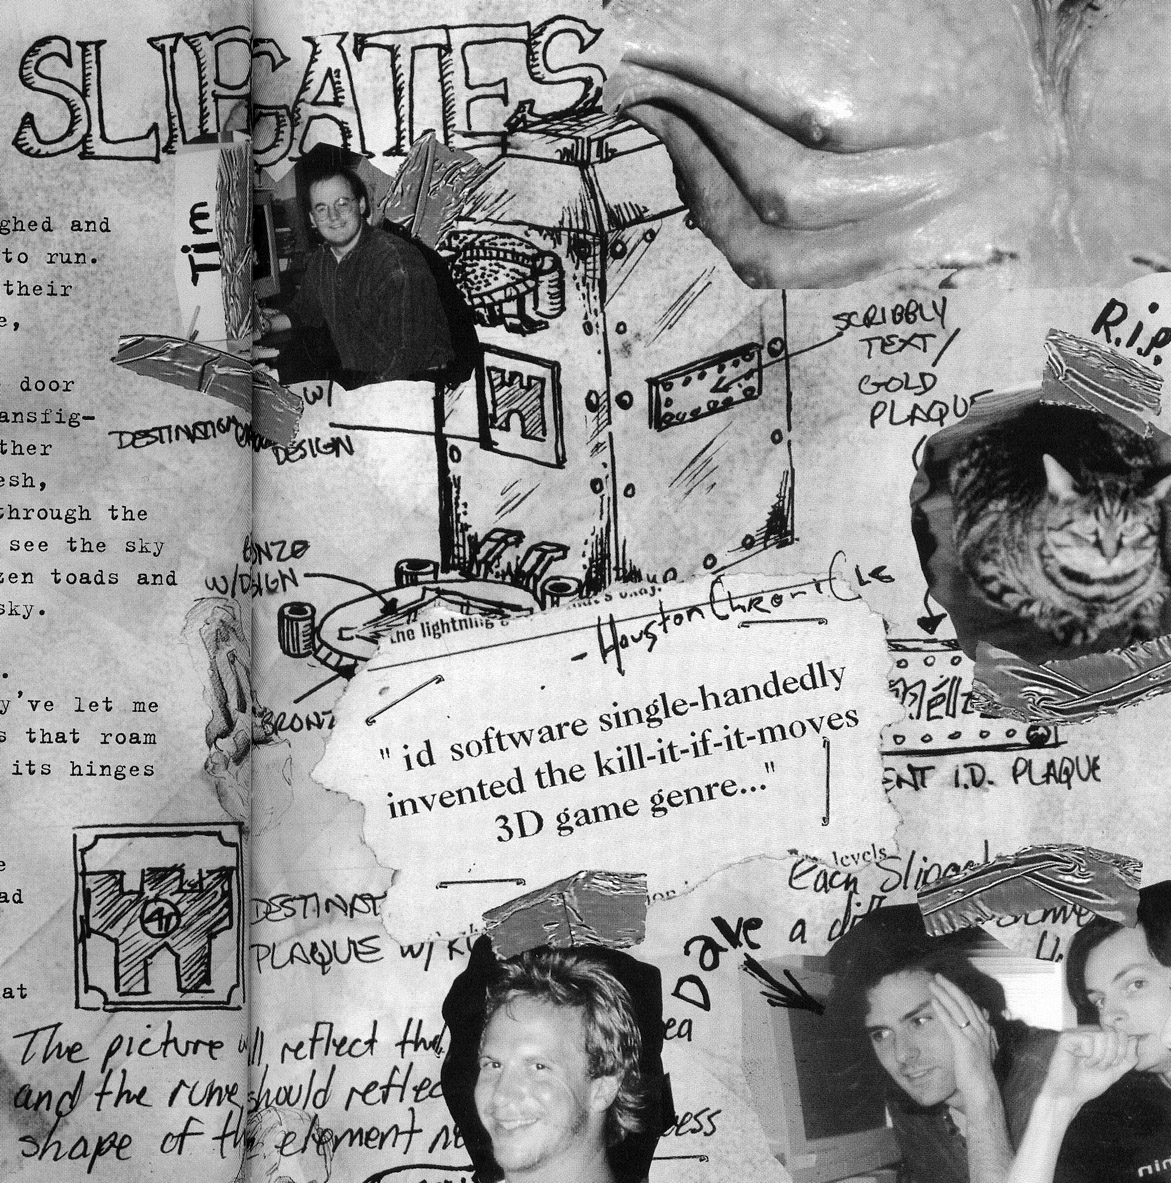 SLIPGATES
ghed and
to run.
their
e,
door
ansfig-
ther
esh,
through the
see the sky
zen toads and
sky.
y've let me
s that roam
its hinges
e
ad
at
Tim
W/
DESTINATION
DESIGN
SCRIBBLY
TEXT/
GOLD
PLAQUE
R.i.P.
W/DSIGN
BRONZ
the lightning
- Houston Chronicle
" id software single-handedly
invented the kill-it-if-it-moves
3D game genre..."
ENT I.D. PLAQUE
levels
Each Slipgat
a dif
DESTINAT
PLAQUE W/
Dave
The picture will reflect that
and the rune should reflec
shape of the element
ea
cess
nin